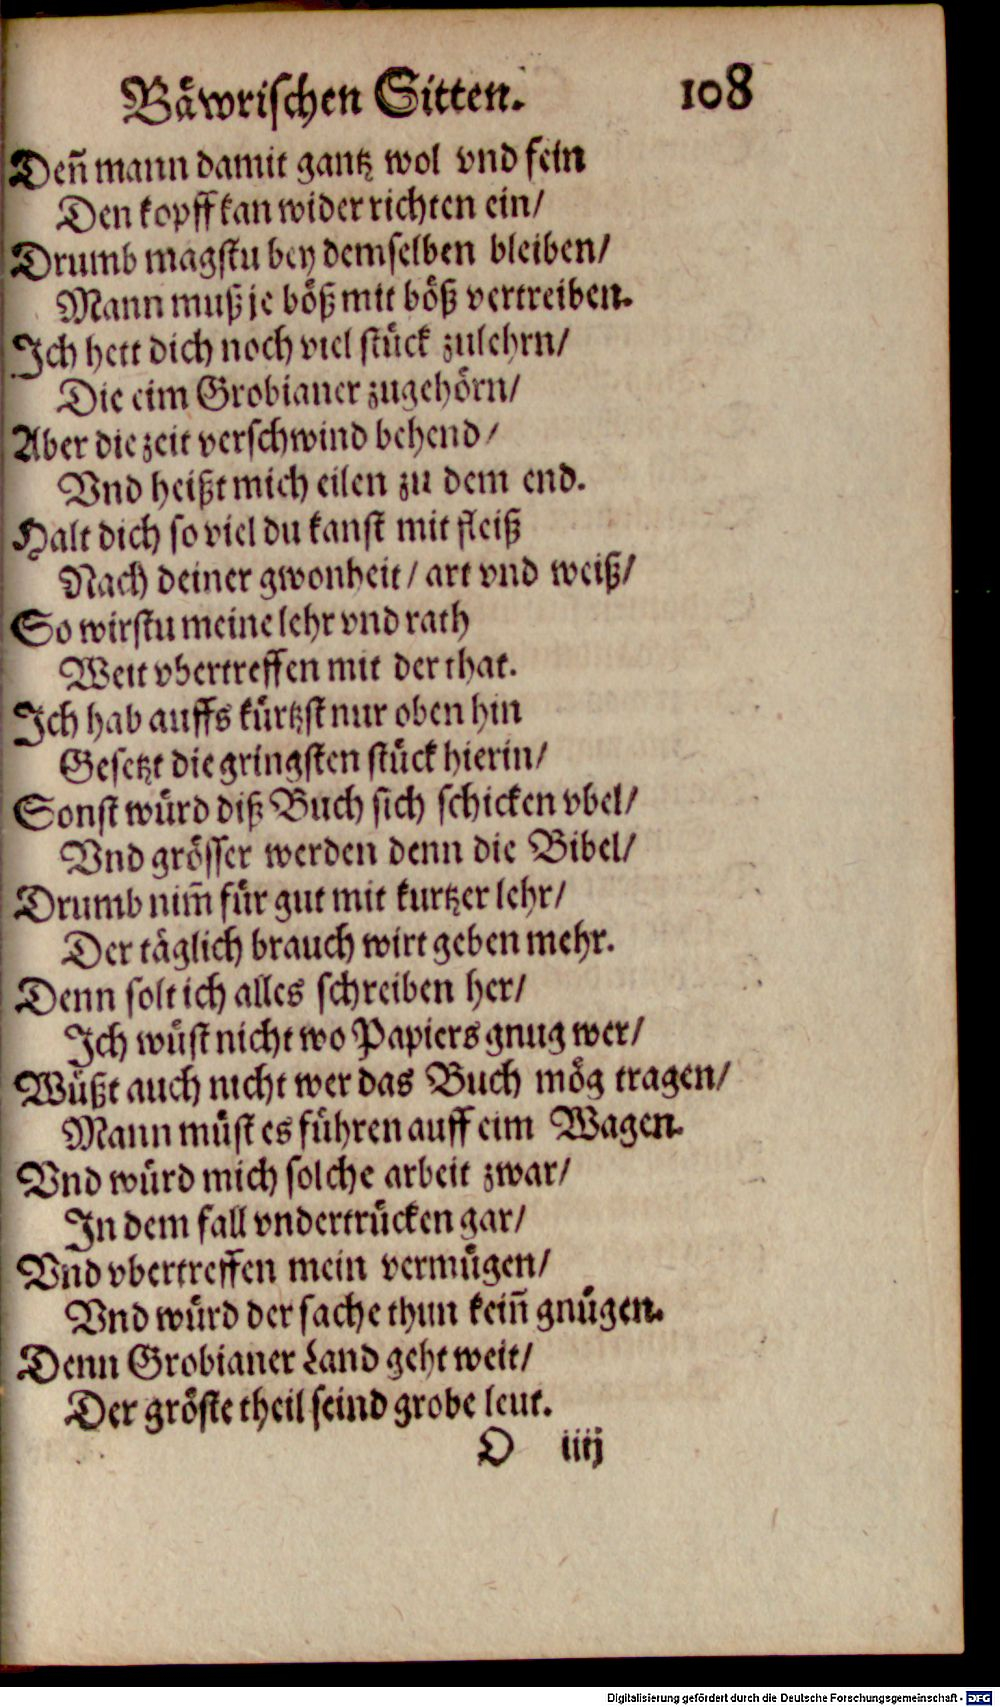 Bäwrischen Sitten. 108
Deñ mann damit gantz wol vnd fein
Den kopff kan wider richten ein/
Drumb magstu bey demselben bleiben/
Mann muß je böß mit böß vertreiben.
Ich hett dich noch viel stück zulehrn/
Die eim Grobianer zugehörn/
Aber die zeit verschwind behend/
Vnd heißt mich eilen zu dem end.
Halt dich so viel du kanst mit fleiß
Nach deiner gwonheit/ art vnd weiß/
So wirstu meine lehr vnd rath
Weit vbertreffen mit der that.
Ich hab auffs kürtzst nur oben hin
Gesetzt die gringsten stück hierin/
Sonst würd diß Buch sich schicken vbel/
Vnd grösser werden denn die Bibel/
Drumb nim̃ für gut mit kurtzer lehr/
Der täglich brauch wirt geben mehr.
Denn solt ich alles schreiben her/
Ich wüst nicht wo Papiers gnug wer/
Wüßt auch nicht wer das Buch mög tragen/
Mann müst es führen auff eim Wagen.
Vnd würd mich solche arbeit zwar/
In dem fall vndertrücken gar/
Vnd vbertreffen mein vermügen/
Vnd würd der sache thun keiñ gnügen.
Denn Grobianer Land geht weit/
Der gröste theil seind grobe leut.
O iiij
Digitalisierung gefördert durch die Deutsche Forschungsgemeinschaft - DFG